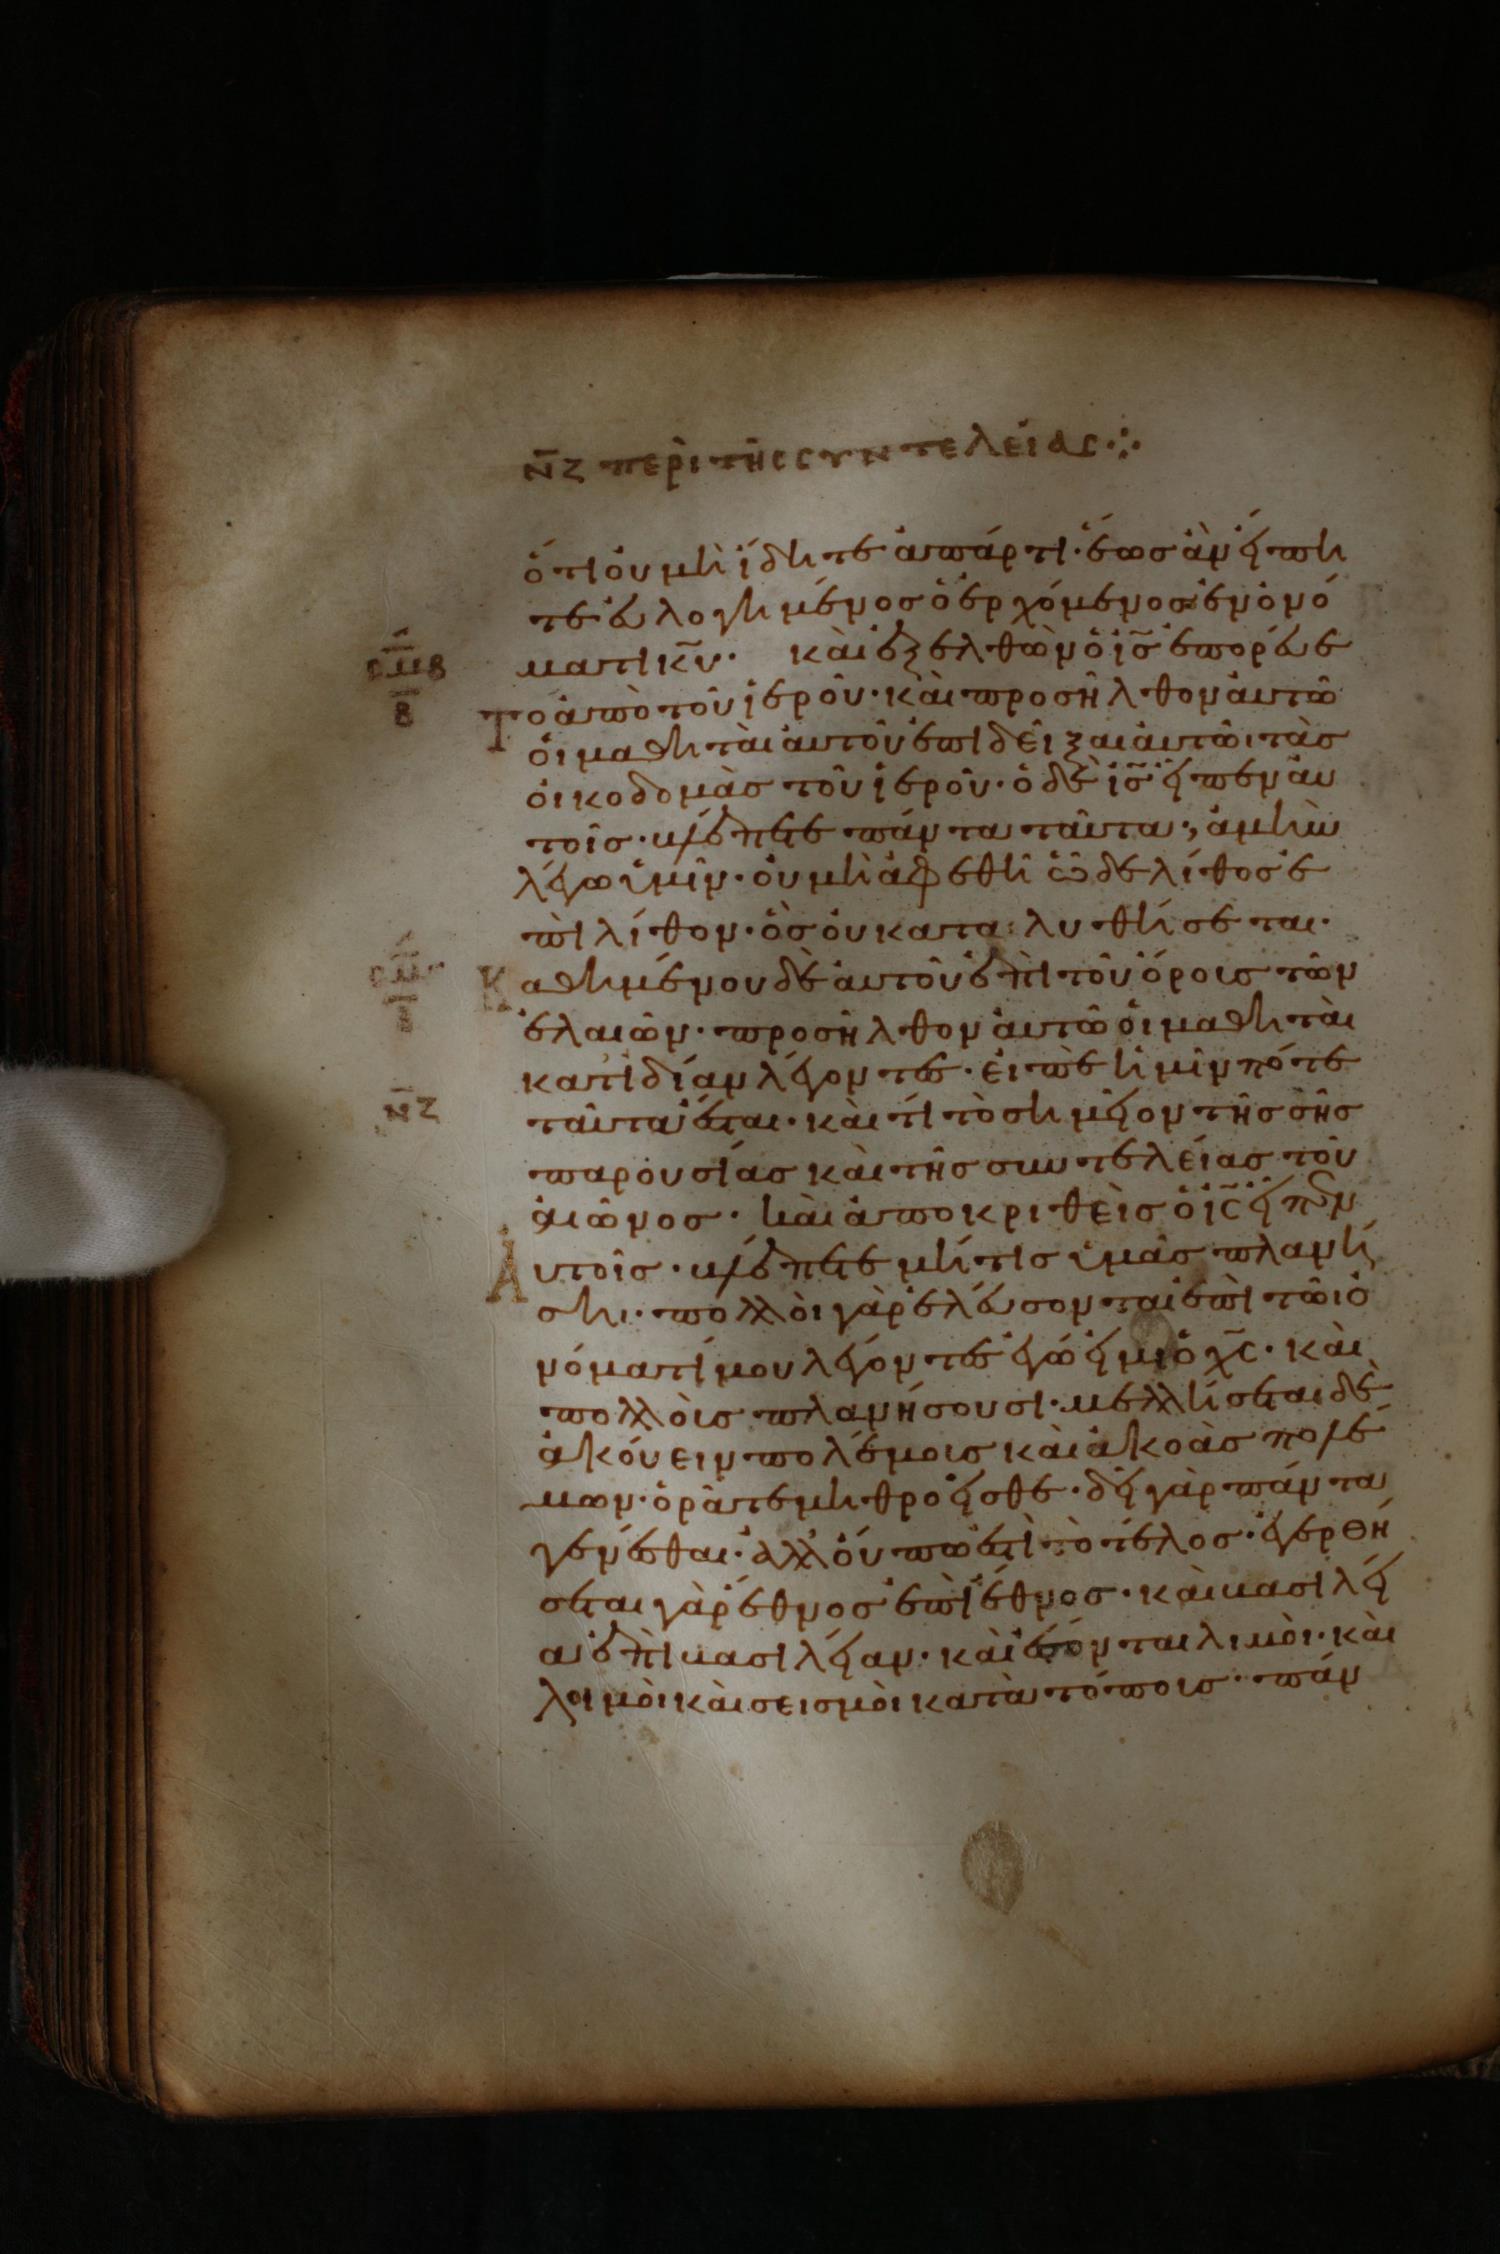 ν̄ζ περὶ τῆς συντελείας
ὅτι οὐ μὴ ἴδητε ἀπάρτι· ἕως ἂν εἴπη
τε εὐλογημένος ὁ ἐρχόμενος ἐν ὀνό
ματι κ̄υ· καὶ ἐξελθὼν ὁ ι̅σ̅ ἐπορεύε
σ̄μ̄β
β
το ἀπὸ τοῦ ἱεροῦ· καὶ προσῆλθον αὐτῶ
οἱ μαθηταὶ αὐτοῦ ἐπιδεῖξαι αὐτῶι τὰσ
οἰκοδομὰσ τοῦ ἱεροῦ· ὁ δὲ ι̅σ̅ εἶπεν αὐ
τοῖσ· βλέπετε πάντα ταῦτα·, ἀμὴν
λέγω ὑμῖν· οὐ μὴ ἀφεθῆ ὧδε λίθοσ ἐ
πὶ λίθον· ὃσ οὐ καταλυθήσεται·
Καθημένου δὲ αὐτοῦ ἐπὶ τοῦ ὄρουσ τῶν
ἐλαιῶν· προσῆλθον αὐτῶ οἱ μαθηταὶ
κατιδίαν λέγοντεσ· εἰπὲ ἡμῖν πότε
ν̄ζ
ταῦτα ἔσται· καὶ τί τὸ σημεῖον τῆσ σῆσ
παρουσίασ καὶ τῆσ συντελείασ τοῦ
αἰῶνοσ· καὶ ἀποκριθεὶσ ὁ ι̅ς̅ εἶπεν
Αὐτοῖσ· βλέπετε μή τισ ὑμᾶσ πλανή
σηι· πολλοὶ γὰρ ἐλεύσονται ἐπὶ τῶι ὀ
νόματί μου λέγοντεσ ἐγώ εἰμι ὁ χ̅ς̅· καὶ
πολλοὺσ πλανήσουσι· μελλήσεται δὲ
ἀκούειν πολέμουσ καὶ ἀκοὰσ πολέ
μων· ὁρᾶτε μὴ θροεῖσθε· δεῖ γὰρ πάντα
γενέσθαι· ἀλλ' οὔπω ἐστὶ τὸ τέλοσ· ἐγερθή
σεται γὰρ ἔθνοσ ἐπὶ ἔθνοσ· καὶ βασιλεί
α ἐπὶ βασιλείαν· καὶ ἔσονται λιμοὶ· καὶ
λοιμοὶ καὶ σεισμοὶ κατὰ τόπουσ· πάν